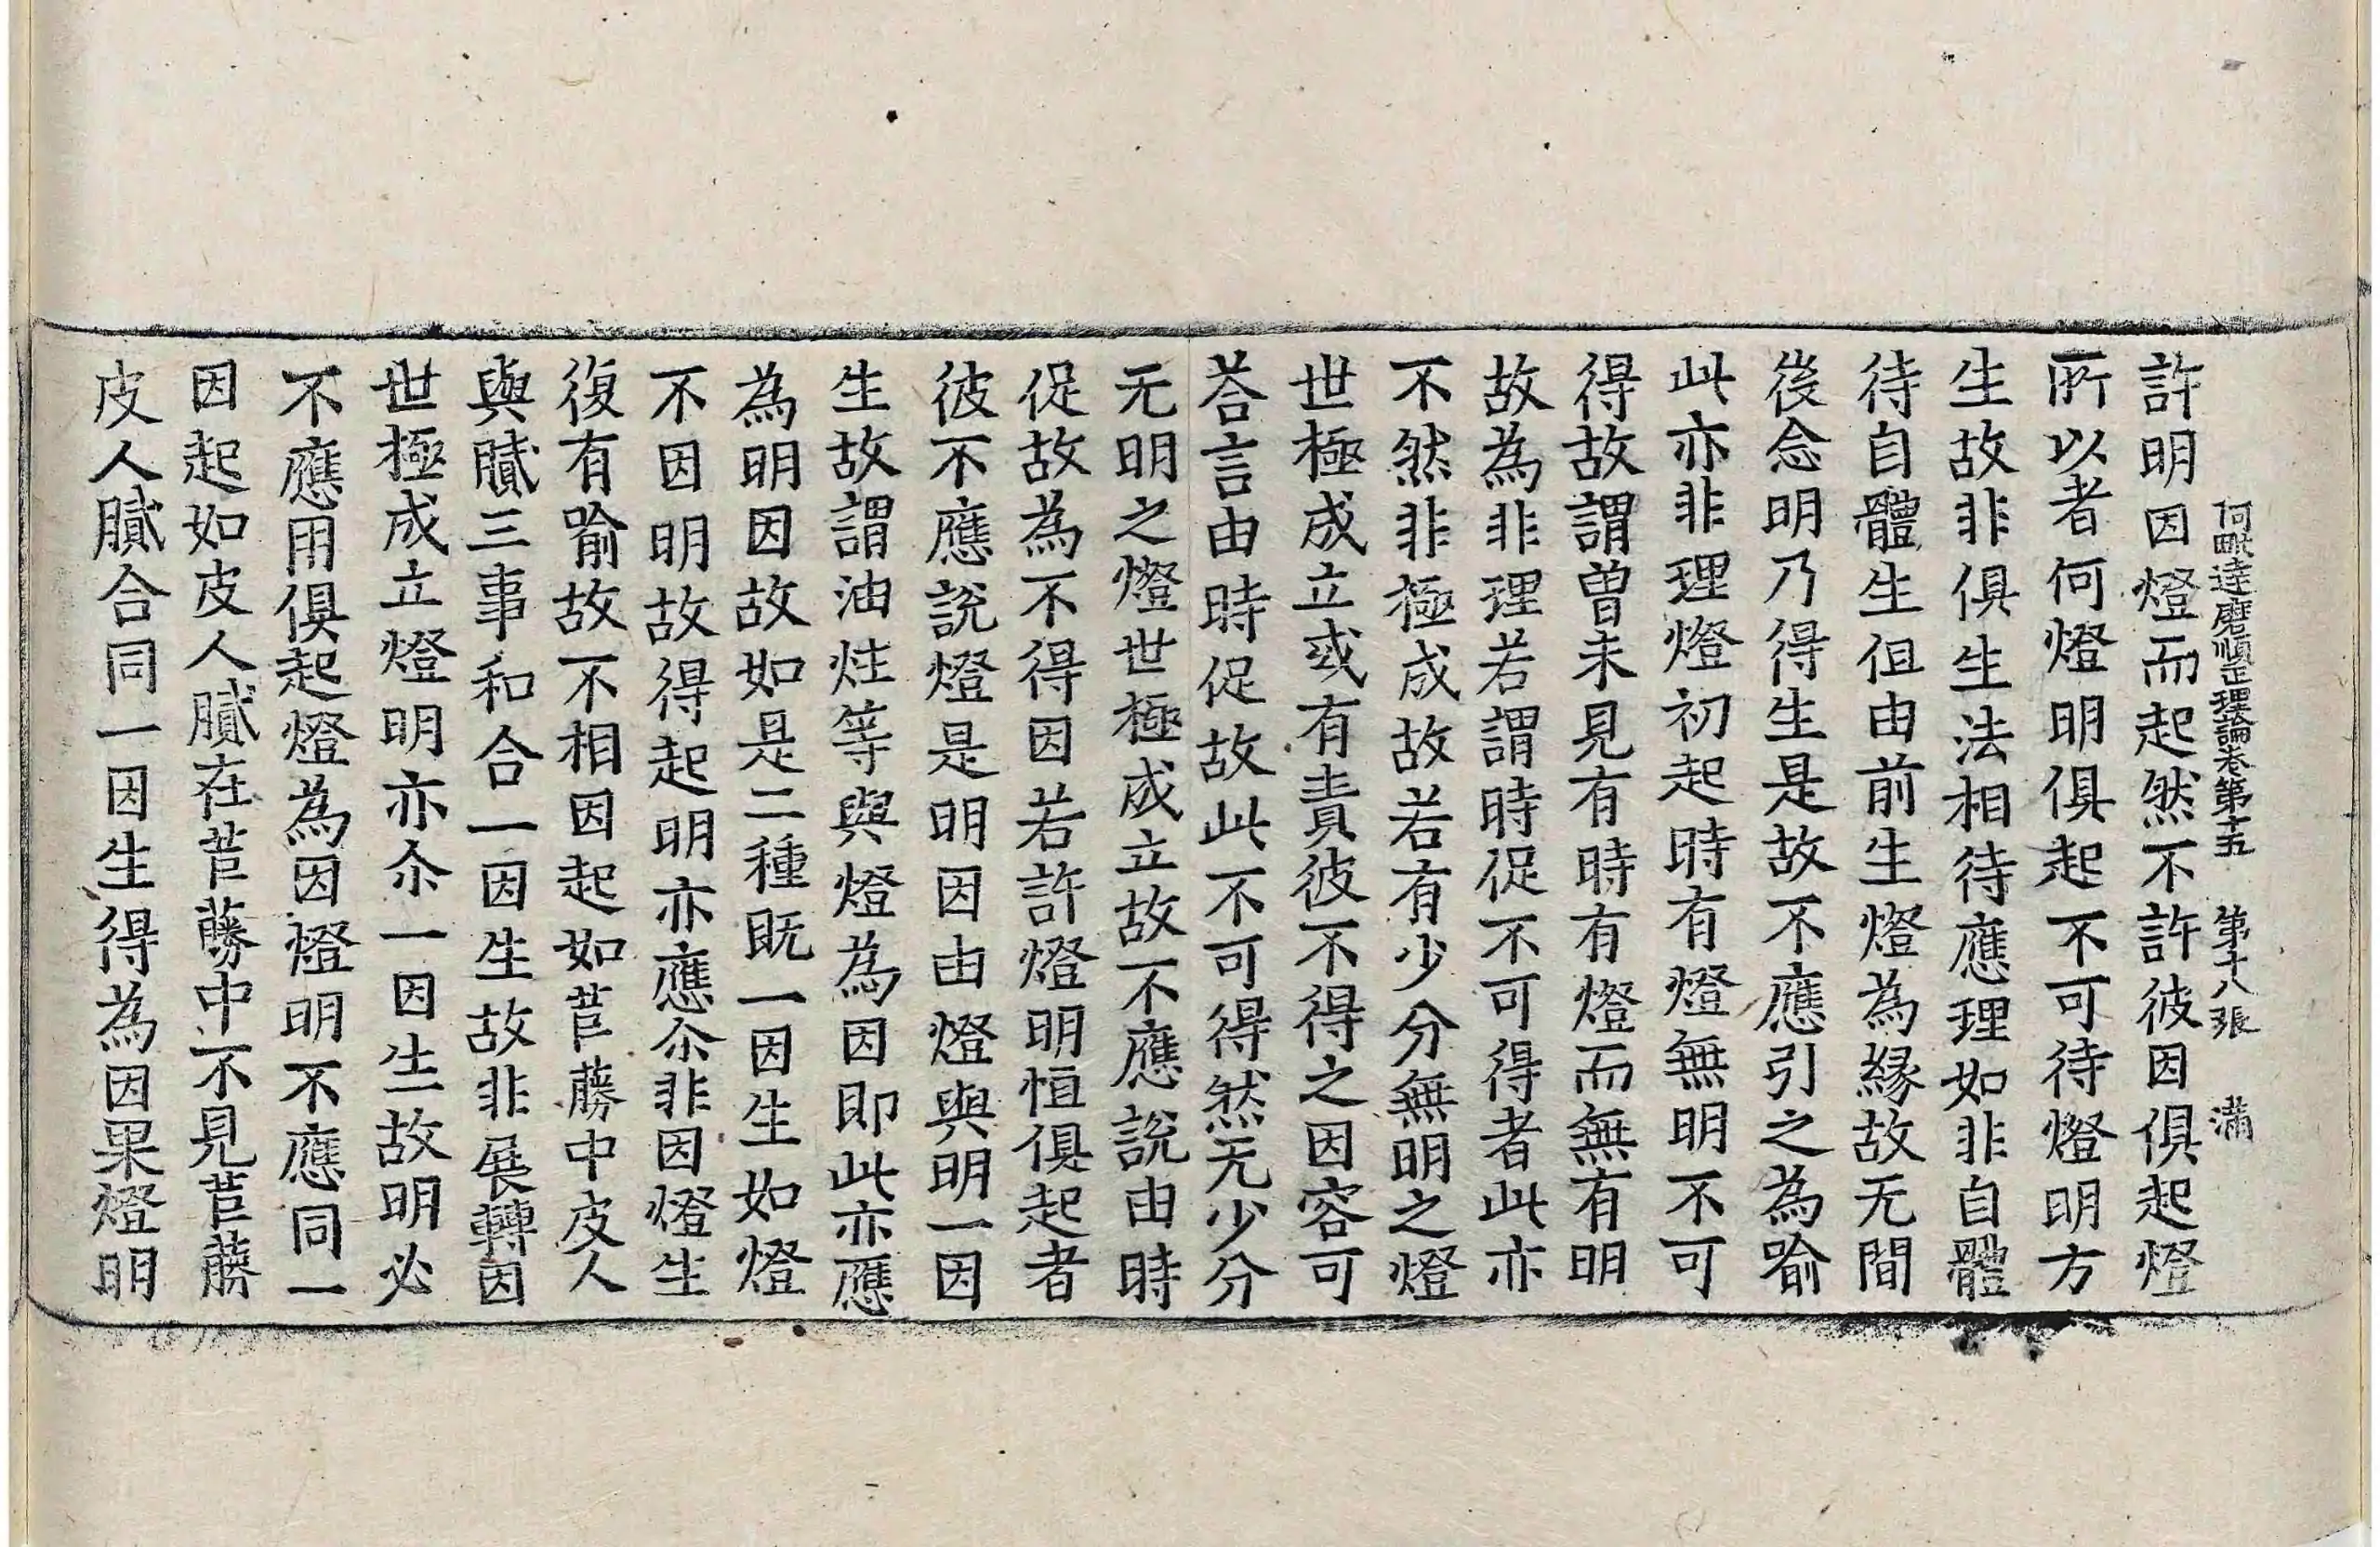 阿毗達磨順正理論卷第十五　第十八張　滿
許明因燈而起然不許彼因俱起燈
所以者何燈明俱起不可待燈明方
生故非俱生法相待應理如非自體
待自體生但由前生燈為緣故无間
後念明乃得生是故不應引之為喻
此亦非理燈初起時有燈無明不可
得故謂曾未見有時有燈而無有明
故為非理若謂時促不可得者此亦
不然非極成故若有少分無明之燈
世極成立或有責彼不得之因容可
荅言由時促故此不可得然无少分
无明之燈世極成立故不應說由時
促故為不得因若許燈明恒俱起者
彼不應說燈是明因由燈與明一因
生故謂油炷等與燈為因即此亦應
為明因故如是二種既一因生如燈
不因明故得起明亦應尒非因燈生
復有喻故不相因起如苣蕂中皮人
與膩三事和合一因生故非展轉因
世極成立燈明亦尒一因生故明必
不應用俱起燈為因燈明不應同一
因起如皮人膩在苣蕂中不見苣蕂
皮人膩合同一因生得為因果燈明